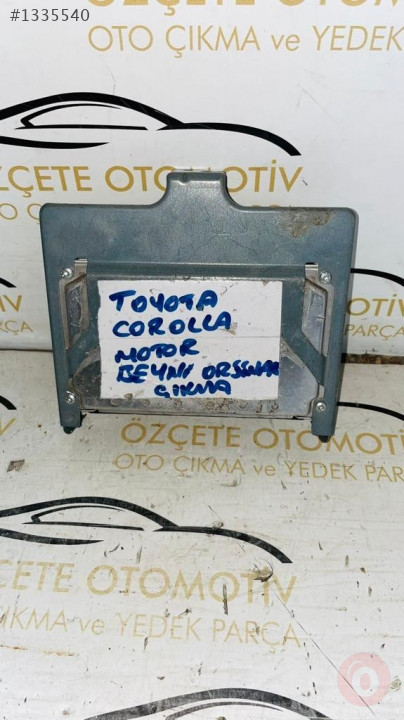 #1335540
ÖZÇETE OTOMOTİV
OTO ÇIKMA ve YEDEK PARÇA
ÖZÇETE OTOMOTİV
PARÇA
TOYOTA
COROLLA
MOTOR
BEYNİ ORJİNAL
ÇIKMA
ÖZÇETE OTOMOTİV
OTO ÇIKMA ve YEDEK PARÇA
ÖZÇETE OTOMOTİV
OTO ÇIKMA ve YEDEK PARÇA